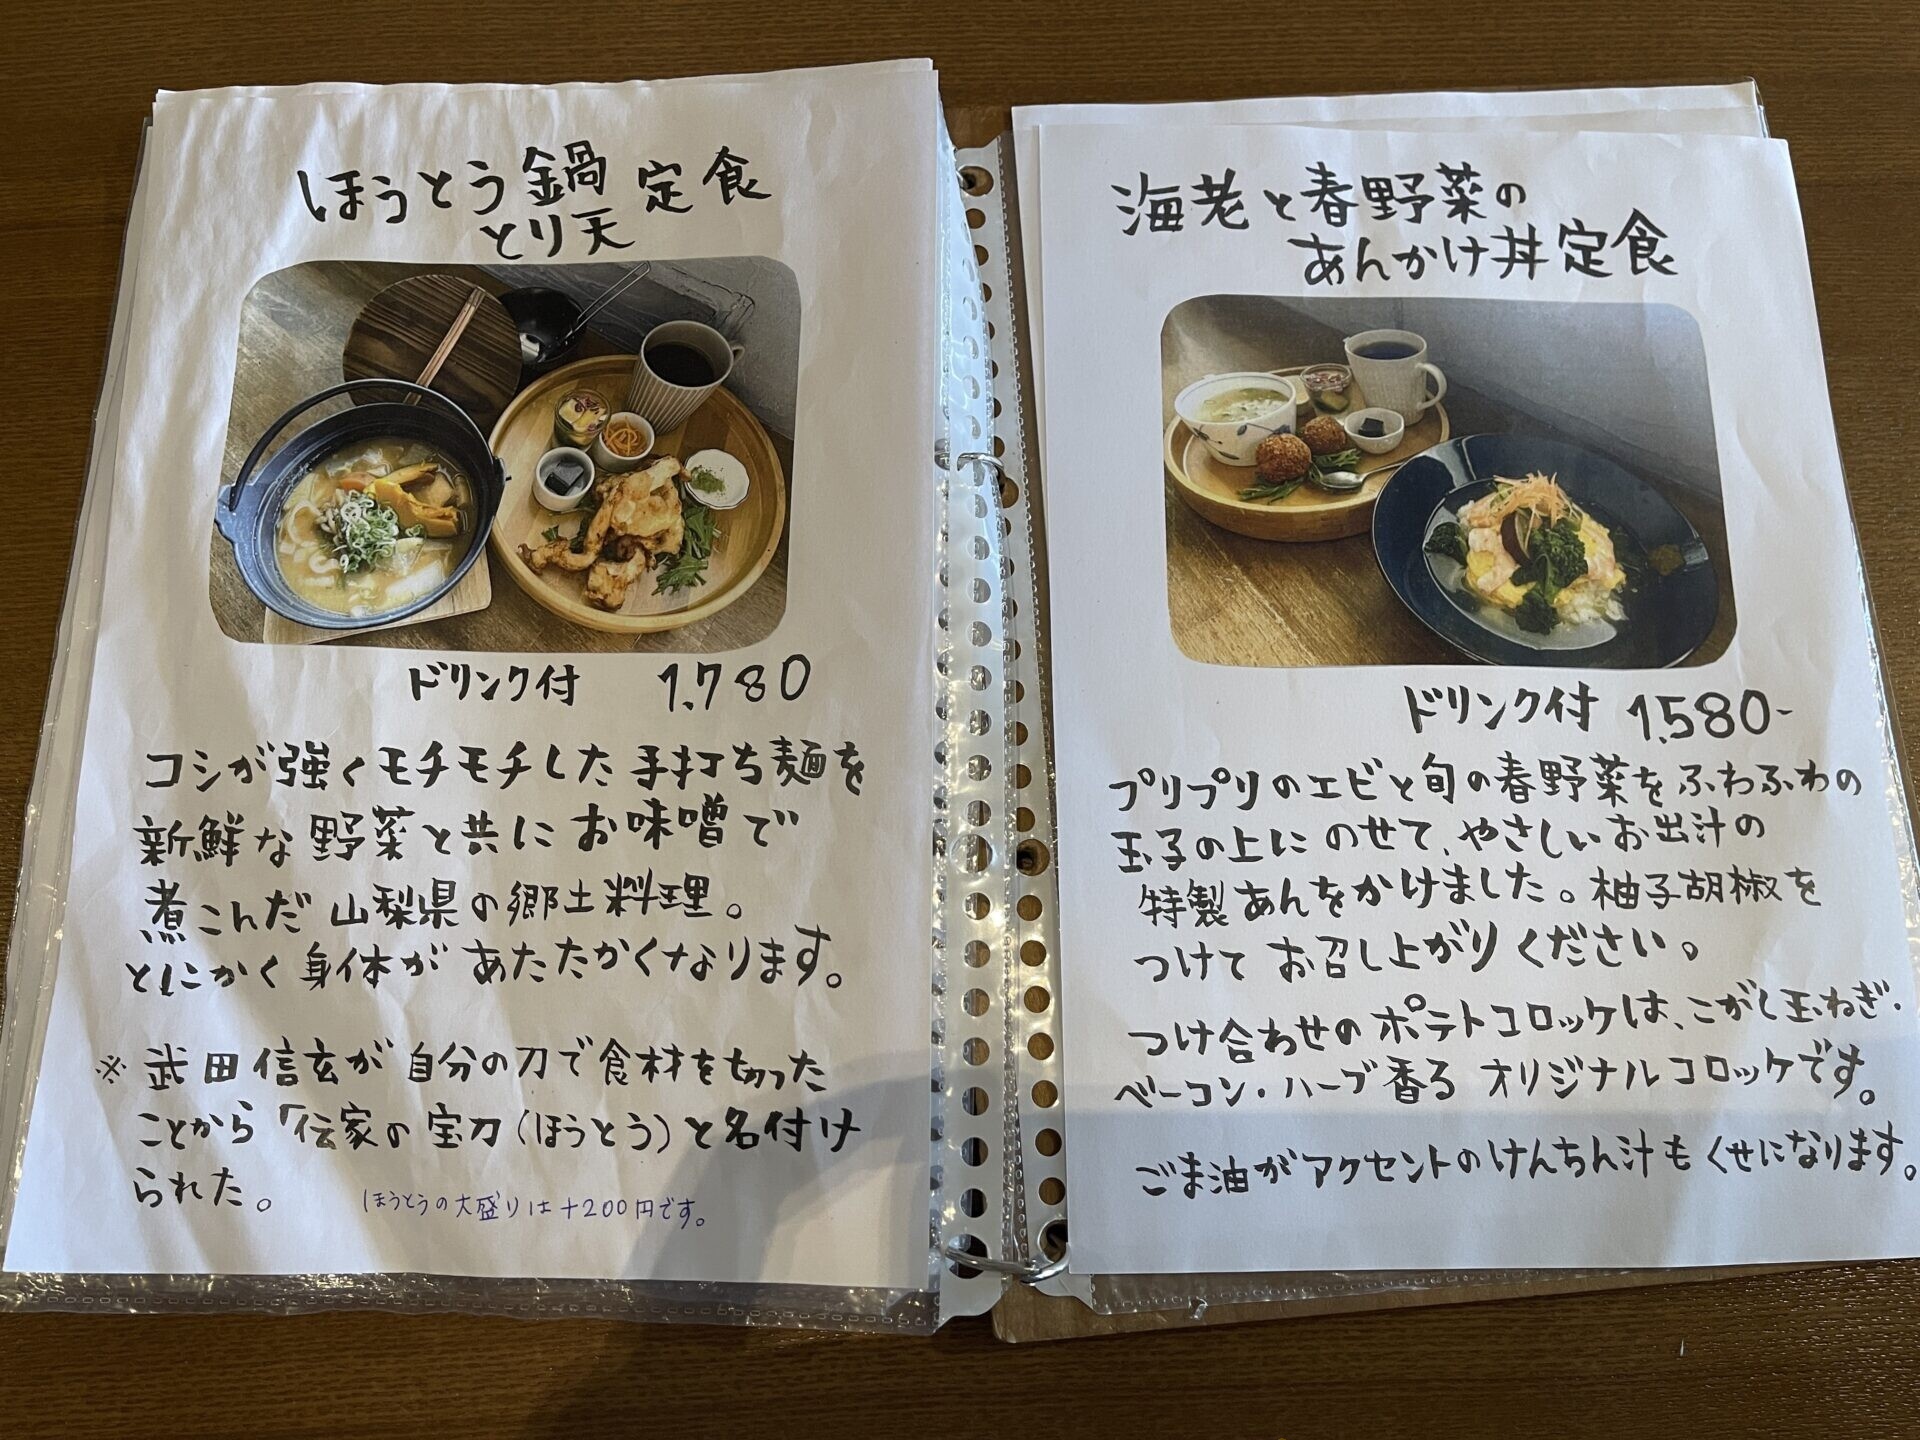 ほうとう鍋定食
とり天
ドリンク付 1,780
コシが強くモチモチした手打ち麺を
新鮮な野菜と共にお味噌で
煮こんだ山梨県の郷土料理。
とにかく身体があたたかくなります。
※武田信玄が自分の刀で食材を切った
ことから「伝家の宝刀(ほうとう)と名付け
られた。
ほうとうの大盛りは+200円です。
海老と春野菜の
あんかけ丼定食
ドリンク付 1,580-
プリプリのエビと旬の春野菜をふわふわの
玉子の上にのせて、やさしいお出汁の
特製あんをかけました。柚子胡椒を
つけてお召し上がりください。
つけ合わせのポテトコロッケは、こがし玉ねぎ・
ベーコン・ハーブ香るオリジナルコロッケです。
ごま油がアクセントのけんちん汁もくせになります。